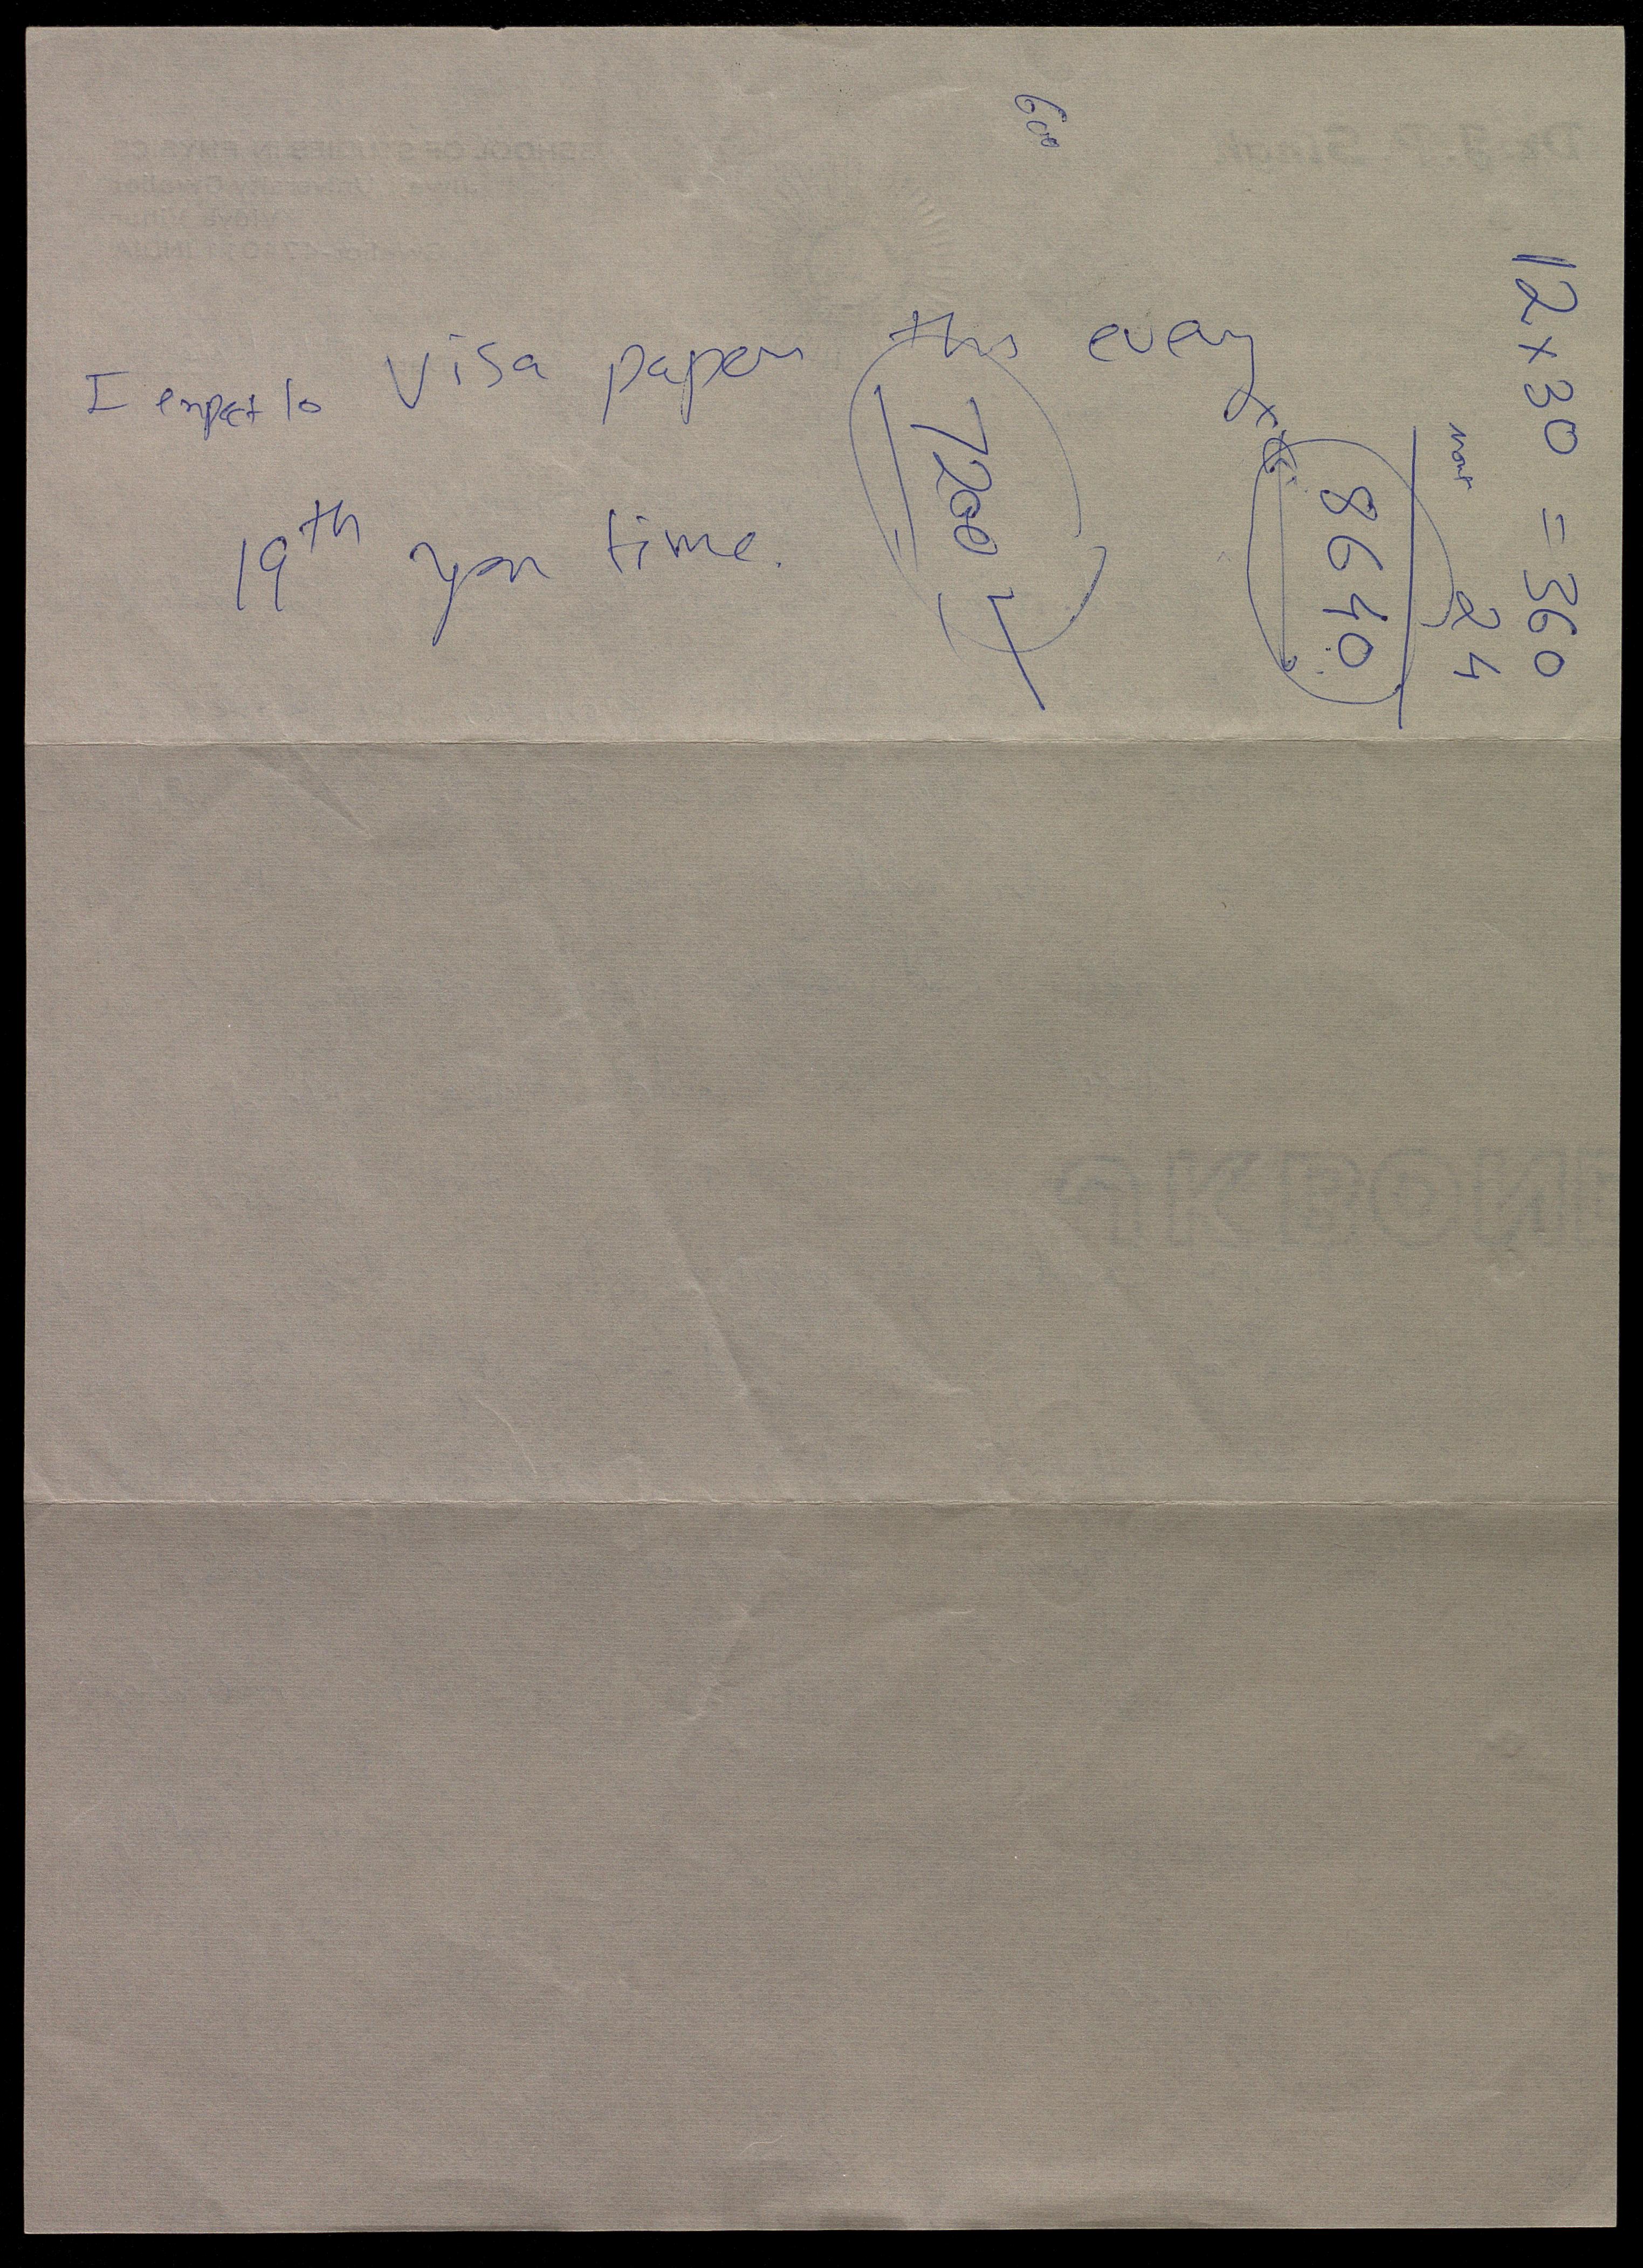 600
I expect to visa papers this every
19th your time.
7200
12 x 30 = 360
24
8640